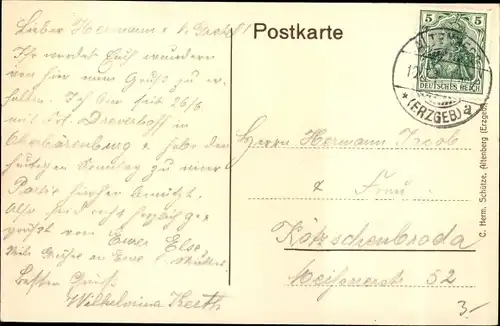 Postkarte
Lieber Hermann u. l.
Ihr werdet Euch wundern
von hier einen Gruss zu er-
halten. Ich bin seit 26/6
mit Frl. Dreverhoff in
Oberbärenburg u. habe den
heutigen Sonntag zu einer
Partie hierher benutzt.
Also seid recht herzlich ge-
grüsst von Eurer Else.
Viele Grüsse an Eure l. Mutter.
Besten Gruss
Wilhelmina Kerth
5 5
DEUTSCHES REICH
ALTENBERG
* (ERZGEB) a
Herrn Hermann Jacob
& Frau
Kötzschenbroda
Meißnerstr 52
C. Herm. Schütze, Altenberg (Erzgeb.)
3,-